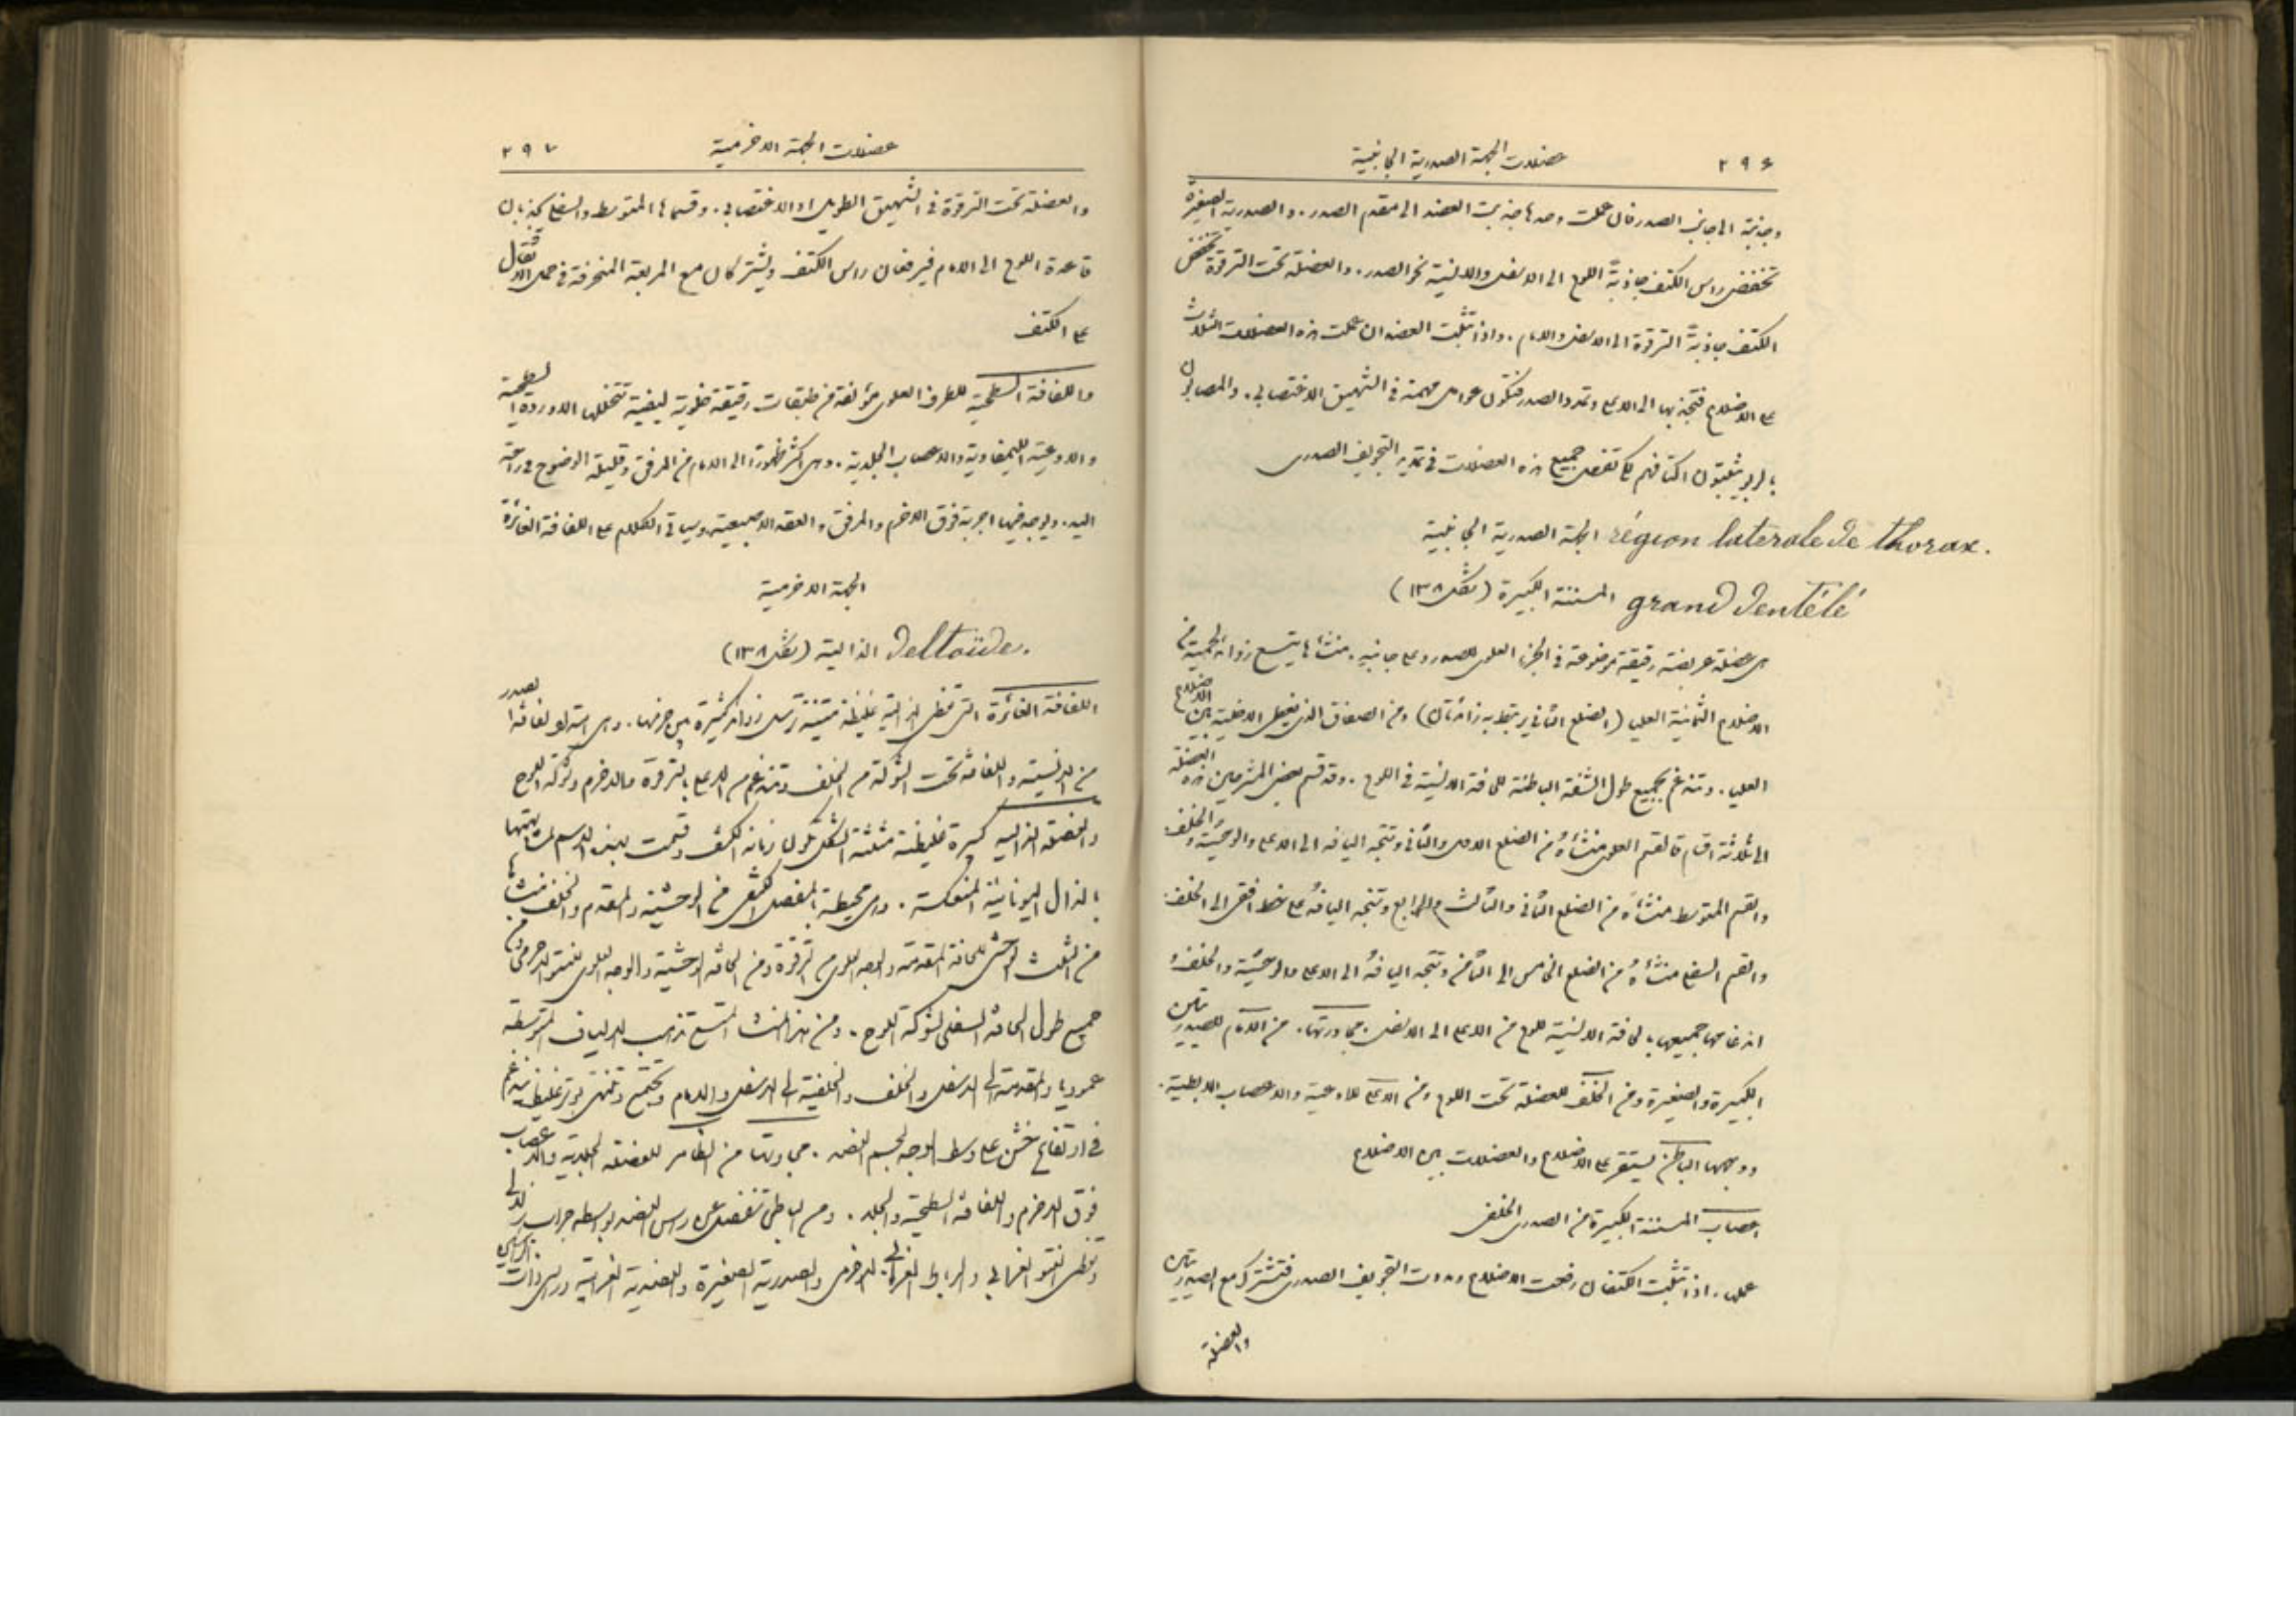 ٢٩٦
عضلات الجهة الصدرية الجانبية
وجانبية الى جانبي الصدر فان عملت وحدها جذبت العضد الى مقدم الصدر. والصدرية الصغيرة
تخفض راس الكتف جاذبةً اللوح الى الاسفل والانسية نحو الصدر. والعضلة تحت الترقوة تخفض
الكتف جاذبةً الترقوة الى الاسفل والامام. واذا تثبت العضدان عملت هذه العضلات الثلاث
على الاضلاع فتجذبها الى الاعلى وتمدد الصدر فتكون عوامل مهمة في الشهيق الاغتصابي. والمصابون
بالربو يثبتون اكتافهم لكي تفعل جميع هذه العضلات في تمديد التجويف الصدري
الجهة الصدرية الجانبية région laterale de thorax.
المسننة الكبيرة (شكل ١٣٨) grand dentélé
هي عضلة عريضة رقيقة موضوعة في الجزء العلوي للصدر وعلى جانبيه. منشأها بتسع زوائد لحمية من
الاضلاع الثمنية العليا (الضلع الثاني يرتبط به زائدتان) ومن الصفاق الذي يغطي الاخلية بين الاضلاع
العليا. وتندغم بجميع طول الشفة الباطنة للحافة الانسية في اللوح. وقد قسم بعض المشرحين هذه العضلة
الى ثلاثة اقسام فالقسم العلوي منشأهُ من الضلع الاول والثاني وتتجه اليافه الى الاعلى والوحشية والخلف.
والقسم المتوسط منشأهُ من الضلع الثاني والثالث والرابع وتتجه اليافهُ على خط افقي الى الخلف.
والقسم السفلي منشأهُ من الضلع الخامس الى الثامن وتتجه اليافهُ الى الاعلى والوحشية والخلف و
اندغامها جميعها بالحافة الانسية للوح من الاعلى الى الاسفل. مجاورتها. من الامام للصدريتين
الكبيرة والصغيرة ومن الخلف للعضلة تحت اللوح ومن الاعلى للاوعية والاعصاب الابطية.
ووجهها الباطن يستقر على الاضلاع والعضلات بين الاضلاع
اعصاب المسننة الكبيرة من الصدري الخلفي
عملها. اذا تثبت الكتفان رفعت الاضلاع ومددت التجويف الصدري فتشترك مع الصدريتين
والعضلة
عضلات الجهة الاخرمية
٢٩٧
والعضلة تحت الترقوة في الشهيق الطويل او الاغتصابي. وقسماها المتوسط والسفلي يجذبان
قاعدة اللوح الى الامام فيرفعان راس الكتف ويشتركان مع المربعة المنحرفة في حمل الاثقال
على الكتف
واللفافة السطحية للطرف العلوي مؤلفة من طبقات رقيقة خلوية ليفية تتخللها الاوردة السطحية
والاوعية الليمفاوية والاعصاب الجلدية. وهي اكثر ظهورًا الى الامام من المرفق وقليلة الوضوح في راحة
اليد. ويوجد فيها اجربة فوق الاخرم والمرفق والعقد الاصبعية وسياتي الكلام على اللفافة الغائرة
الجهة الاخرمية
الذالية (شكل ١٣٨) Deltoïde.
اللفافة الغائرة التي تغطي الذالية غليظة متينة ترسل زوائد كثيرة بين حزمها. وهي استطالة لفافة الصدر
من الانسية واللفافة تحت الشوكة من الخلف وتندغم من الاعلى بالترقوة والاخرم وشوكة اللوح
والعضلة الذالية كبيرة غليظة مثلثة الشكل تكون استدارة الكتف وقيمت بهذا الاسم لمشابهتها
بالذال اليونانية المنعكسة. وهي محيطة بالمفصل الكتفي من الوحشية والمقدم والخلف منشأها
من الثلث الوحشي للحافة المقدمة والوجه العلوي من الترقوة ومن الحافة الوحشية والوجه العلوي للنتو الاخرمي ومن
جميع طول الحافة السفلى لشوكة اللوح. ومن هذا المنشا المتسع تذهب الالياف المتوسطة
عموديا والمقدمة الى الاسفل والخلف والخلفية الى الاسفل والامام وتجتمع وتنتهي بوتر غليظ يندغم
في ارتفاع خشن على وسط الوجه لجسم العضد. مجاورتها من الظاهر للعضلة الجلدية والاعصاب
فوق الاخرم واللفافة السطحية والجلد. ومن الباطن تنفصل عن راس العضد بواسطة جراب زلالي
وتغطي النتو الغرابي والرابط الغرابي الاخرمي والصدرية الصغيرة والعضدية الغرابية وراسي ذات الراسين